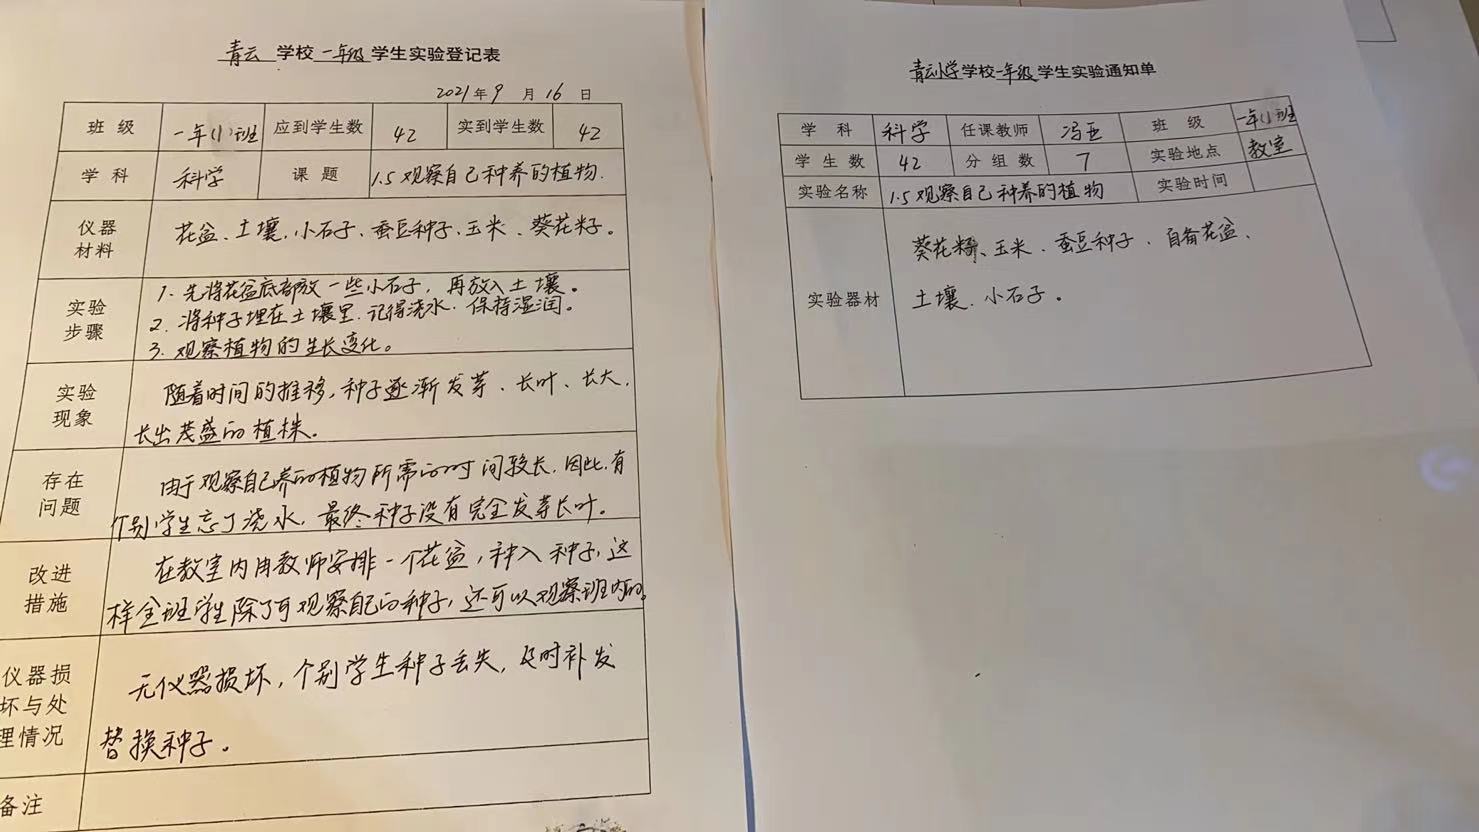 青云 学校 一年级 学生实验登记表
2021 年 9 月 16 日
班 级 一年(1)班 应到学生数 42 实到学生数 42
学 科 科学 课 题 1.5观察自己种养的植物.
仪器
材料
花盆、土壤、小石子、蚕豆种子、玉米、葵花籽。
实验
步骤
1. 先将花盆底部放一些小石子，再放入土壤。
2. 将种子埋在土壤里.记得浇水.保持湿润。
3. 观察植物的生长变化。
实验
现象
随着时间的推移，种子逐渐发芽、长叶、长大，
长出茂盛的植株。
存在
问题
由于观察自己养的植物所需的时间较长.因此，有
个别学生忘了浇水，最终种子没有完全发芽长叶。
改进
措施
在教室内由教师安排一个花盆，种入种子，这
样全班学生除了可观察自己的种子，还可以观察班内的。
仪器损
坏与处
理情况
无仪器损坏，个别学生种子丢失，及时补发
替换种子。
备注
青云小学学校一年级学生实验通知单
学 科 科学 任课教师 冯亚 班 级 一年(1)班
学 生 数 42 分 组 数 7 实验地点 教室
实验名称 1.5观察自己种养的植物 实验时间
实验器材
葵花籽、玉米、蚕豆种子、自备花盆、
土壤、小石子。